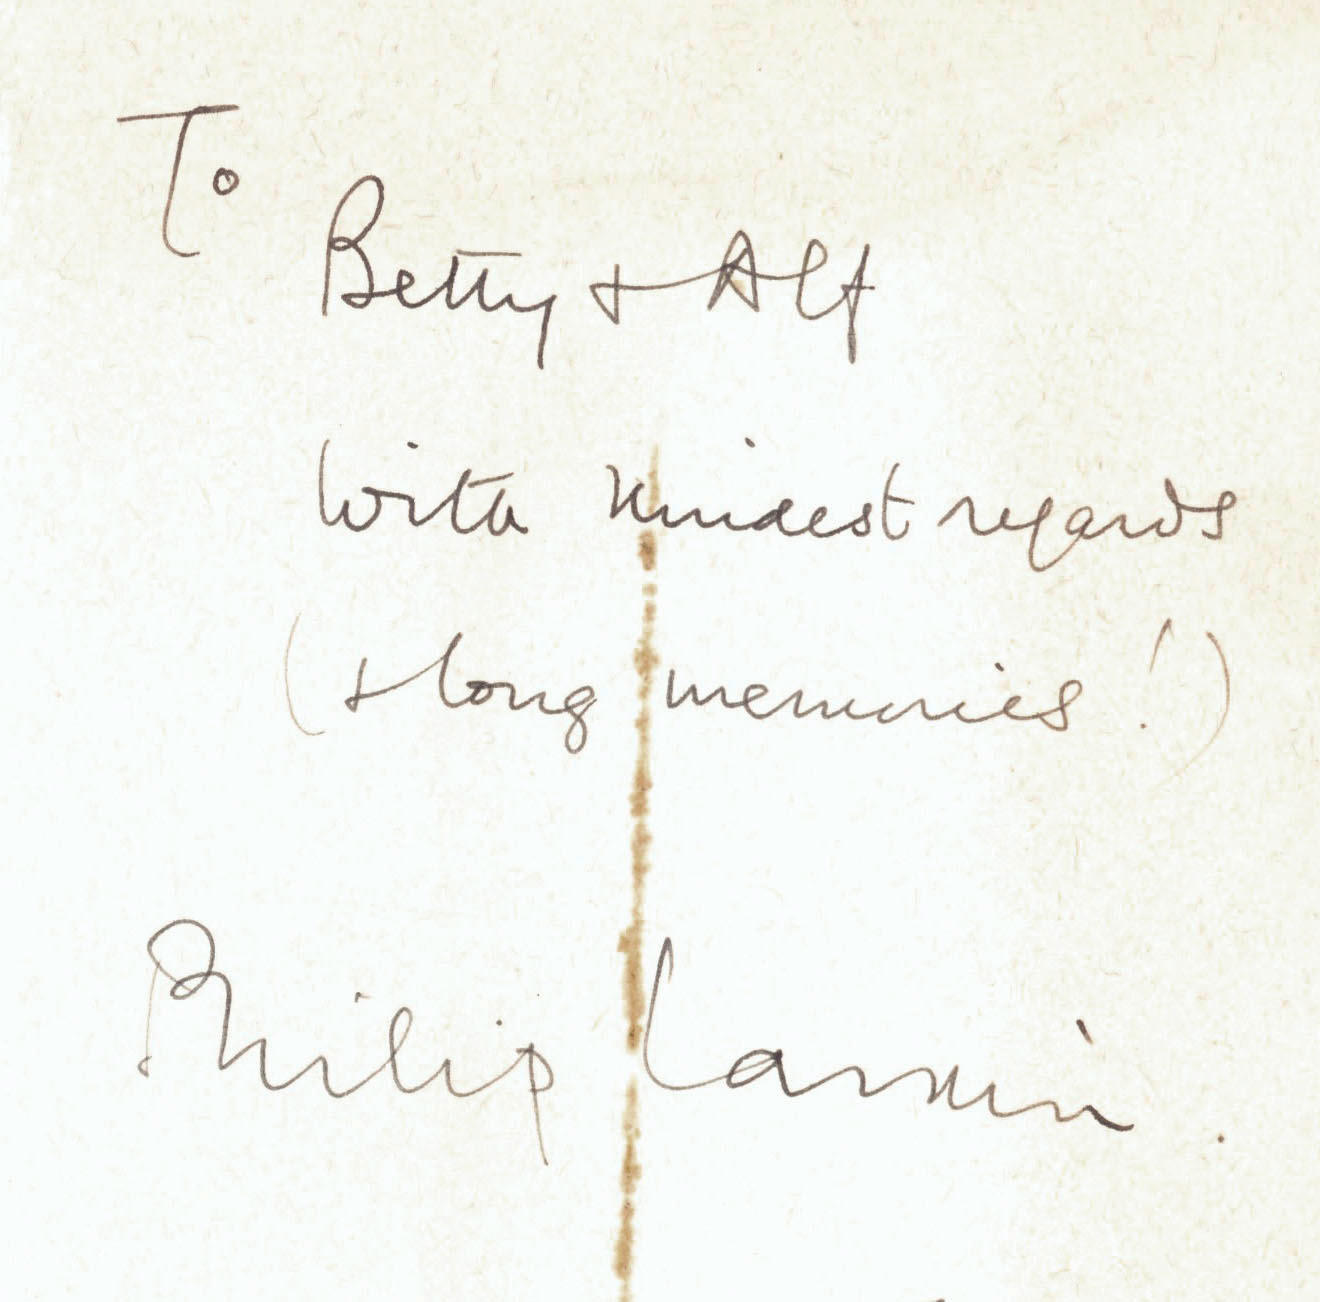 To
Betty + Alf
with kindest regards
(+ long memories!)
Philip Larkin.